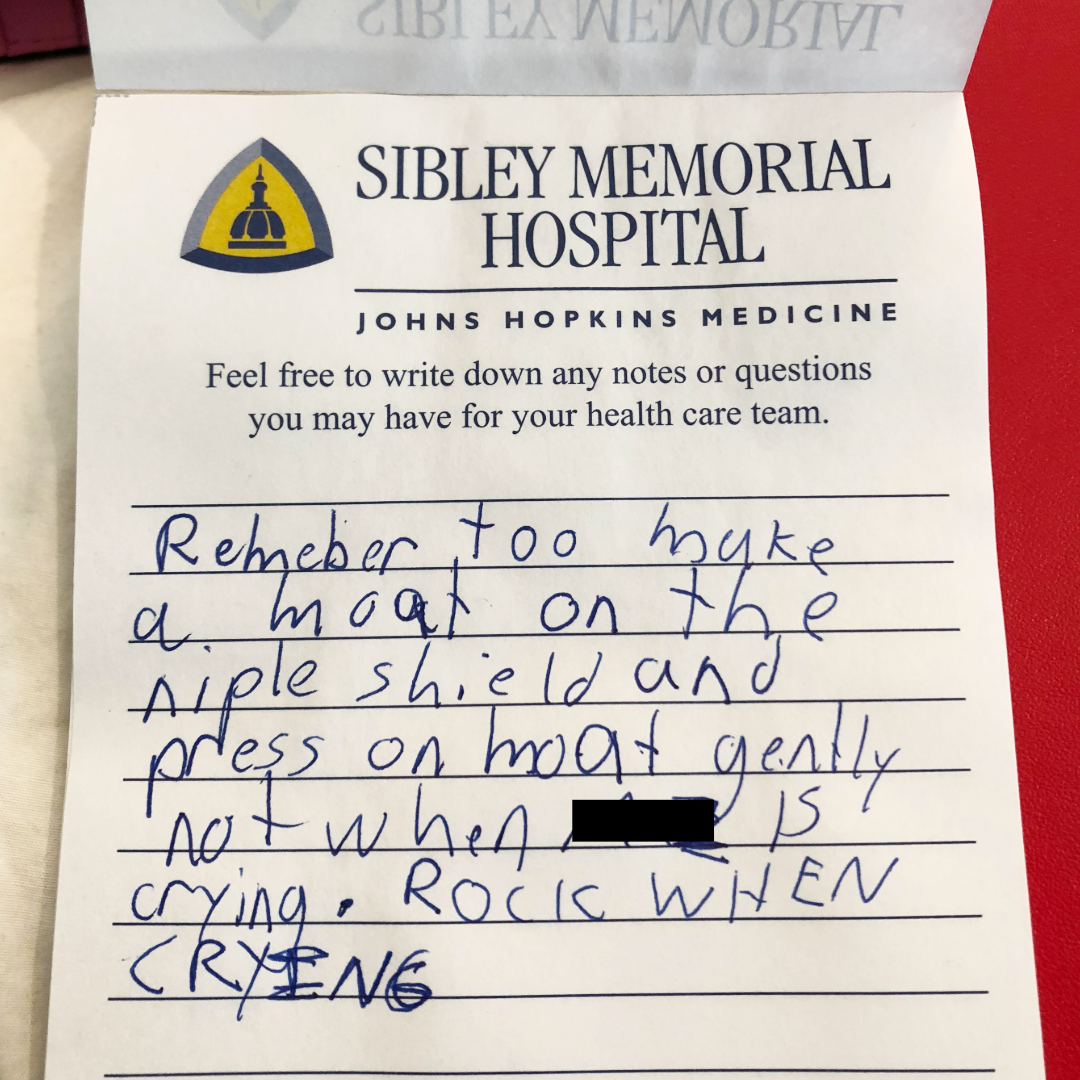 SIBLEY MEMORIAL
SIBLEY MEMORIAL
HOSPITAL
JOHNS HOPKINS MEDICINE
Feel free to write down any notes or questions
you may have for your health care team.
Remeber too make
a moat on the
niple shield and
press on moat gently
not when is
crying. ROCK WHEN
CRYING